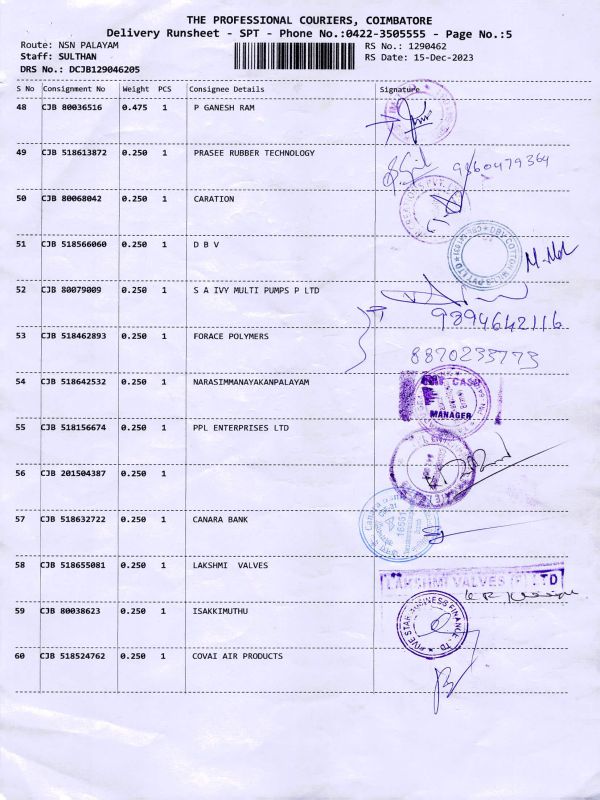 THE PROFESSIONAL COURIERS, COIMBATORE
Delivery Runsheet - SPT - Phone No.:0422-3505555 - Page No.:5
Route: NSN PALAYAM RS No.: 1290462
Staff: SULTHAN RS Date: 15-Dec-2023
DRS No.: DCJB129046205
S No Consignment No Weight PCS Consignee Details Signature
48 CJB 80036516 0.475 1 P GANESH RAM
49 CJB 518613872 0.250 1 PRASEE RUBBER TECHNOLOGY
9360479364
50 CJB 80068042 0.250 1 CARATION
51 CJB 518566060 0.250 1 D B V
52 CJB 80079009 0.250 1 S A IVY MULTI PUMPS P LTD
9894642116
53 CJB 518462893 1 0.250 FORACE POLYMERS
8870233773
54 CJB 518642532 0.250 1 NARASIMMANAYAKANPALAYAM
CASH
MANAGER
55 CJB 518156674 0.250 1 PPL ENTERPRISES LTD
56 CJB 201504387 0.250 1
57 CJB 518632722 0.250 1 CANARA BANK
58 CJB 518655081 0.250 1 LAKSHMI VALVES
LAKSHMI VALVES (P) LTD
59 CJB 80038623 0.250 1 ISAKKIMUTHU
FIVE STAR BUSINESS FINANCE LTD
60 CJB 518524762 0.250 1 COVAI AIR PRODUCTS